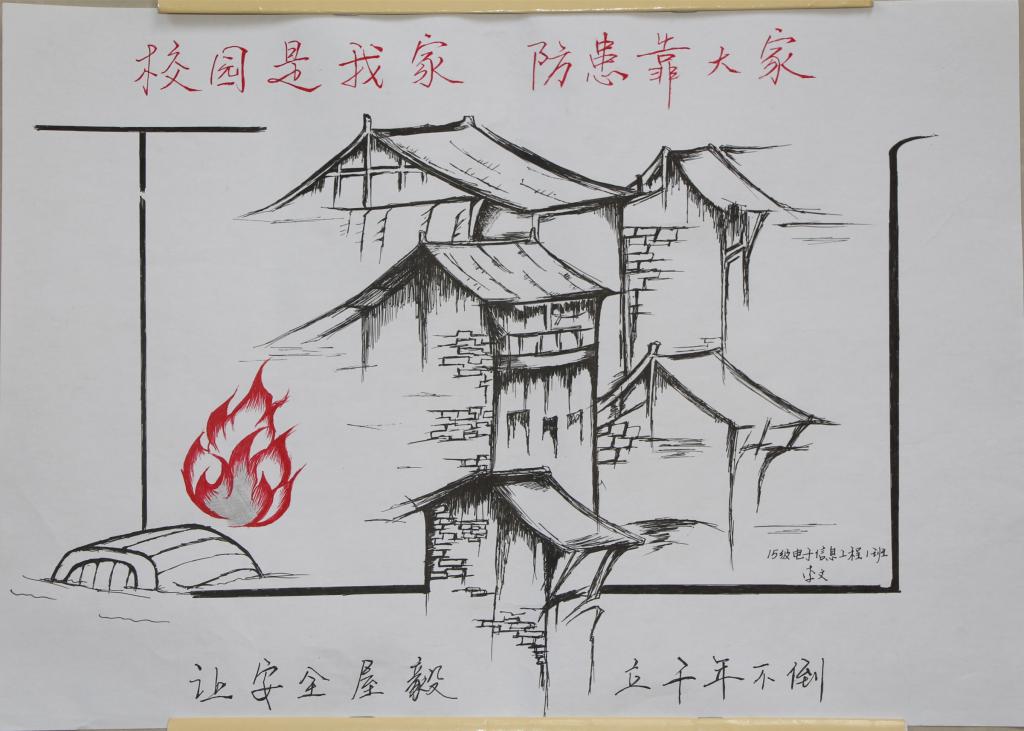 校园是我家 防患靠大家
15级电子信息工程1班
李文
让安全屋毅 立千年不倒